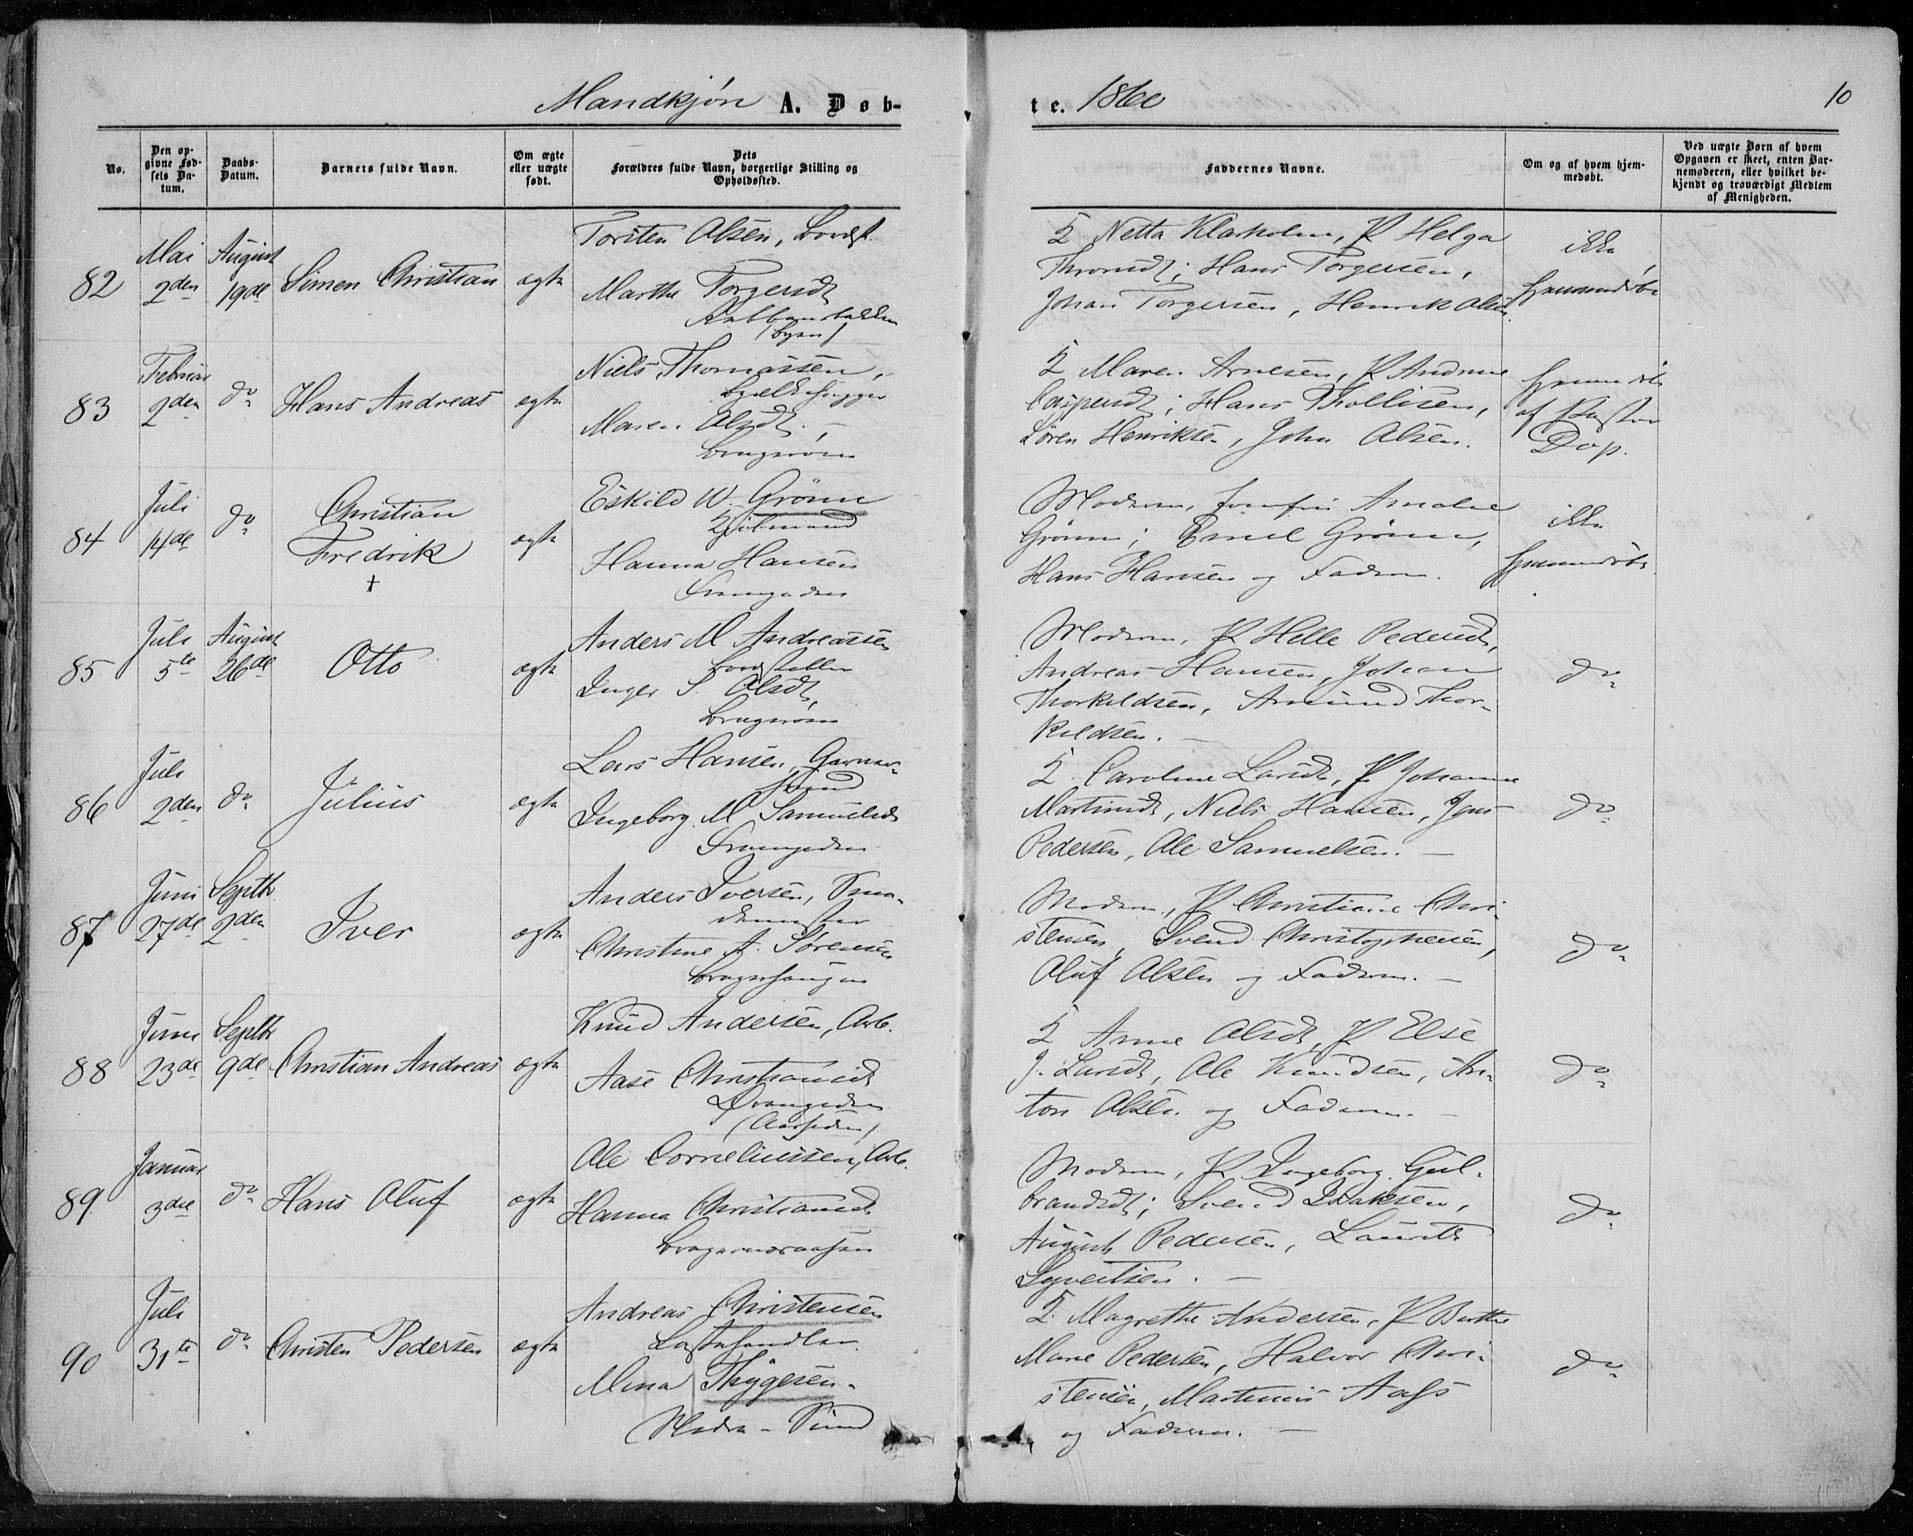 Mandkjøn A. Døb-
te. 1860
10
No.
Den op-
givne Fød-
sels Da-
tum.
Daabs-
Datum.
Barnets fulde Navn.
Om ægte
eller uægte
født.
Dets
Forældres fulde Navn, borgerlige Stilling og
Opholdssted.
Faddernes Navne.
Om og af hvem hjem-
medøbt.
Ved uægte Børn af hvem
Opgaven er skeet, enten Bar-
nemoderen, eller hvilket be-
kjendt og troværdigt Medlem
af Menigheden.
82
Mai
2den
August
19de
Simen Christian
ægte
Torsten Olsen,
Marthe Torgersdt
(Byen)
Netta Klarholm, P Helga
Throndt; Hans Torgersen,
Johan Torgersen, Henrik Olsen
ikke
hjemmedøbt
83
Februar
2den
do
Hans Andreas
ægte
Niels Thomassen,
Maren Olsdt. -
Maren Arnesen, P Andrine
Caspersdt; Hans Thollesen,
Søren Henriksen, John Olsen.
hjemmedøbt
af Pastor
Dop.
84
Juli
14de
do
Christian
Fredrik
+
ægte
Eskild W. Grønn
Kjøbmand
Hanna Hansen
Moderen, Amalie
Grønn; Emil Grønn,
Hans Hansen og Faderen.
ikke
hjemmedøbt
85
Juli
5te
August
26de
Otto
ægte
Anders M Andreassen
Inger S. Olsdt,
Moderen, P Helle Pedersdt,
Andreas Hansen, Johan
Thorkildsen, Amund Thor-
kildsen. -
do
86
Juli
2den
do
Julius
ægte
Lars Hansen, Garver-
svend
Ingeborg M Samuelsdt
Caroline Larsdt, P Johanne
Martinsdt, Niels Hansen, Jens
Pedersen, Ole Samuelsen. -
do
87
Juni
27de
Septbr
2den
Iver
ægte
Anders Iversen, Sme-
demester
Christine A. Sørensen
Moderen, P Christiane Chri-
stensen, Svend Christophersen,
Oluf Olsen og Faderen. -
do
88
Juni
23de
Septbr
9de
Christian Andreas
ægte
Knud Andersen, Arb.
Aase Christiansdt
Anne Olsdt, P Else
J. Larsdt, Ole Knudsen, An-
ton Olsen og Faderen. -
do
89
Januar
3die
do
Hans Oluf
ægte
Ole Corneliussen, Arb.
Hanna Christiansdt
Bragernæsaasen
Moderen, P Ingeborg Gul-
brandsdt; Svend Isaksen,
August Pedersen, Laurits
Syvertsen. -
do
90
Juli
31te
do
Christen Pedersen
ægte
Andreas Christensen
Mina Thygesen.
Nedre - Sund
Magrethe Andersen, P Berthe
Marie Pedersen, Halvor Chri-
stensen, Martinius Aass
og Faderen. -
do